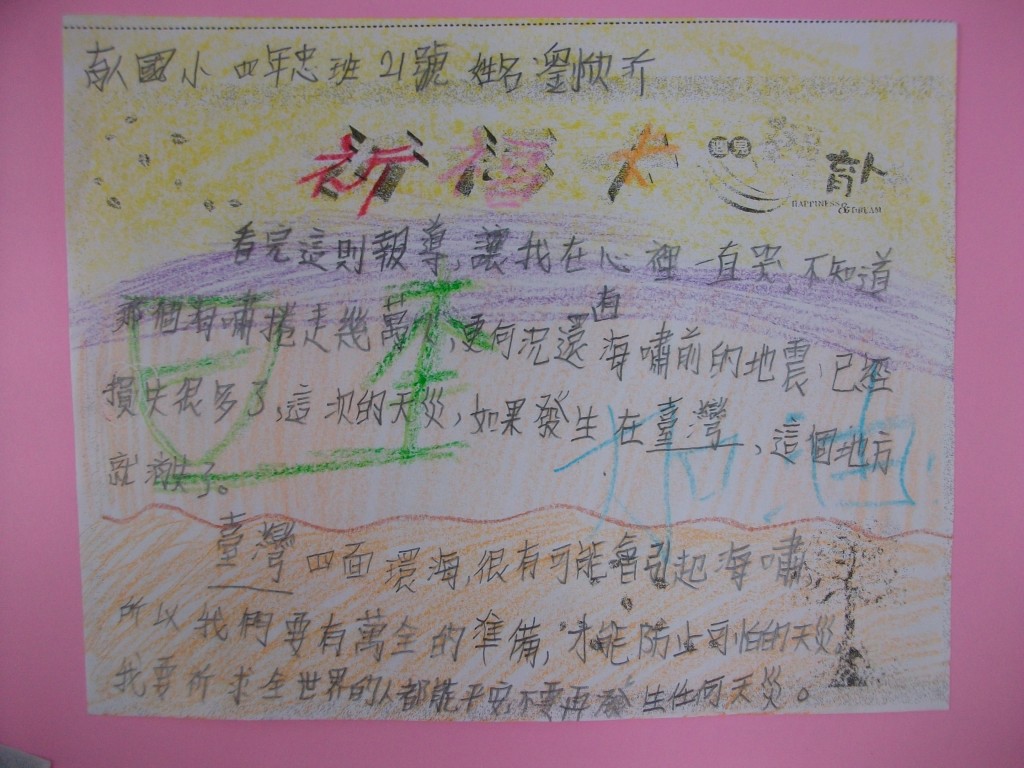 育人國小 四年忠班 21號 姓名:劉欣
祈福卡 遇見 育人
HAPPINESS & DREAM
看完這則報導,讓我在心裡一直哭,不知道
那個海嘯捲走幾萬人,更何況還有海嘯前的地震,已經
損失很多了,這次的天災,如果發生在臺灣,這個地方
就消失了。
日本
加油
臺灣四面環海,很有可能會引起海嘯,
所以我們要有萬全的準備,才能防止可怕的天災,
我要祈求全世界的人都能平安,不要再發生任何天災。